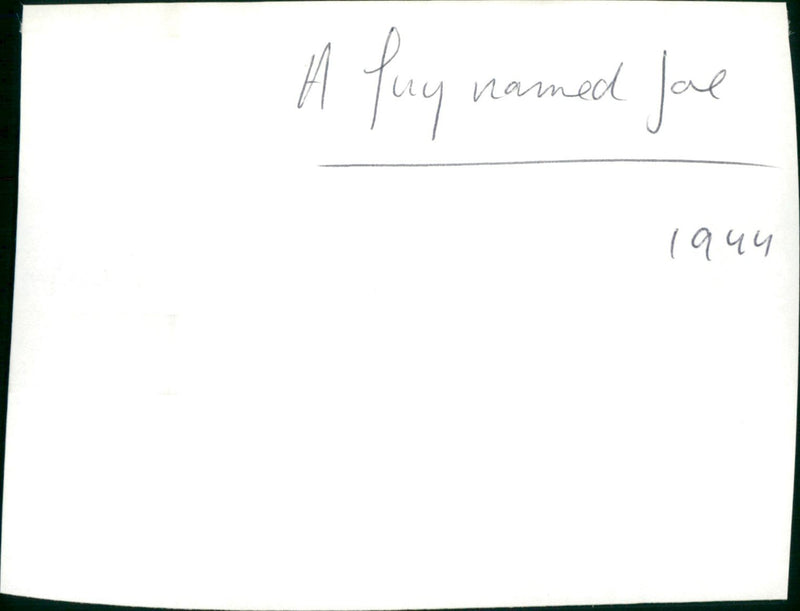 A Guy named Joe
1944